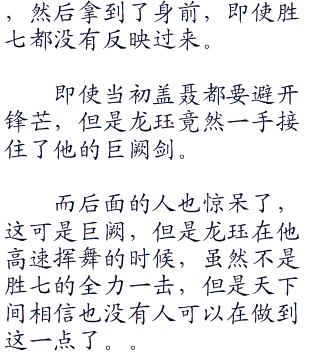 ，然后拿到了身前，即使胜
七都没有反映过来。
即使当初盖聂都要避开
锋芒，但是龙珏竟然一手接
住了他的巨阙剑。
而后面的人也惊呆了，
这可是巨阙，但是龙珏在他
高速挥舞的时候，虽然不是
胜七的全力一击，但是天下
间相信也没有人可以在做到
这一点了。。